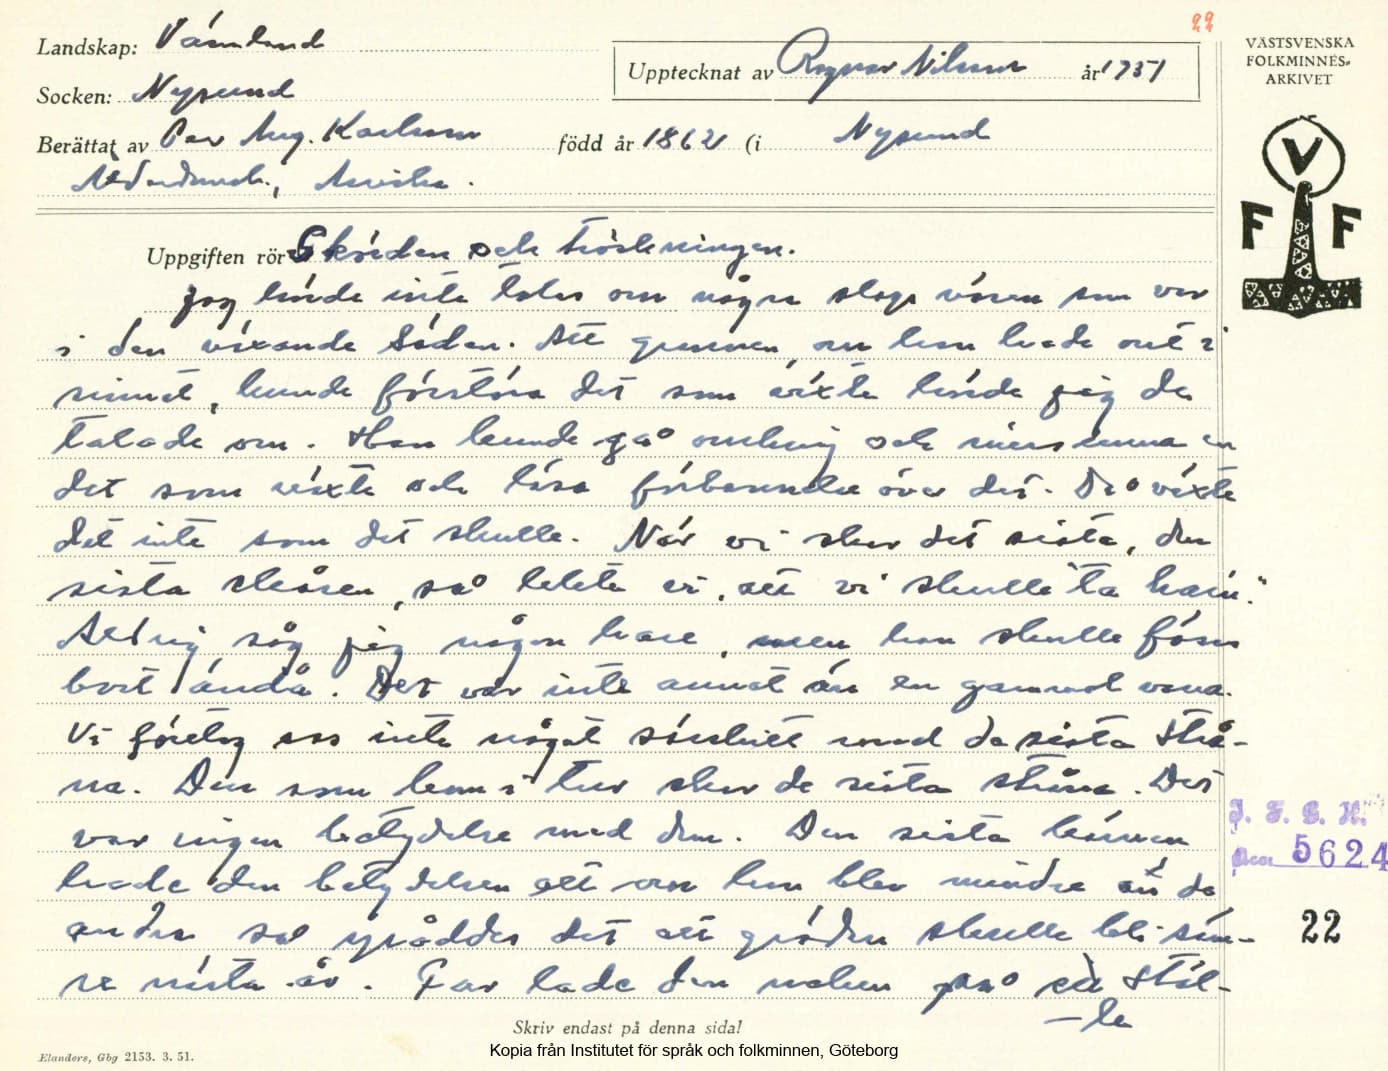 22
Landskap: Värmland
Upptecknat av Ragnar Nilsson år 1951
VÄSTSVENSKA
FOLKMINNES-
ARKIVET
Socken: Nysund
Berättat av Per Aug. Karlsson född år 1862 (i Nysund
Arvika.
V
F F
Uppgiften rör Skörden och tröskningen.
Jag hörde inte talas om några slags väsen som var
i den växande säden. Att grannen, om han hade ont i
sinnet, kunde förstöra det som växte hörde jag de
talade om. Han kunde gå omkring och
det som växte och läsa förbannelse över det. Då växte
det inte som det skulle. När vi skar det sista, den
sista skåren, så lekte vi, att vi skulle "ta haren."
Aldrig såg jag någon hare, men han skulle föras
bort ändå. Det var inte annat än en gammal vana.
Vi företog oss inte något särskilt med de sista strå-
na. Den som kom i tur skar de sista stråna. Det
var ingen betydelse med dem. Den sista kärven
hade den betydelsen att om hon blev mindre än de
andra så spåddes det att gröden skulle bli säm-
re nästa år. Far lade den neken på ett stäl-
-le
J. F. G. H.
Acc 5624
22
Skriv endast på denna sida!
Elanders, Gbg 2153. 3. 51.
Kopia från Institutet för språk och folkminnen, Göteborg